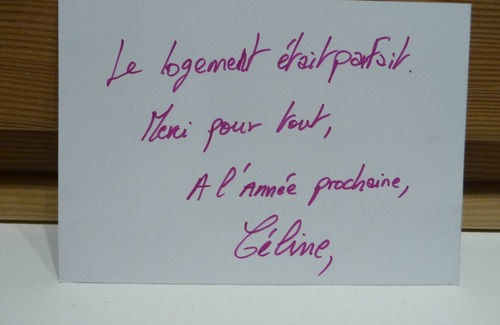 Le logement était parfait.
Merci pour tout,
A l'Année prochaine,
Céline,